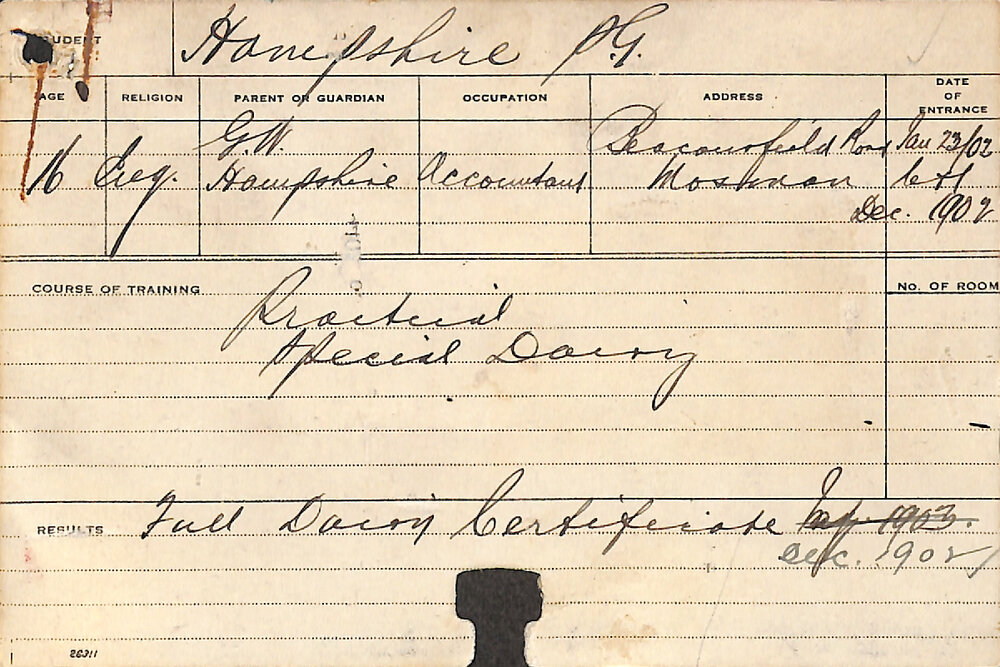 STUDENT Hampshire P.G.
AGE RELIGION PARENT OR GUARDIAN OCCUPATION ADDRESS DATE OF ENTRANCE
G.W. Beaconsfield Road Jan 23/02
16 Hampshire Accountant Mosman to
Dec. 1902
COURSE OF TRAINING No. OF ROOM
Practical
Special Dairy
RESULTS Full Dairy Certificate 1903.
Dec. 1902
26911